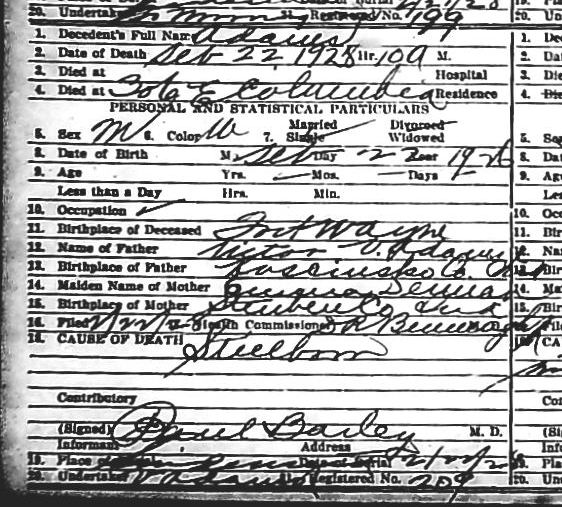 20. Undertaker 21. Registered No. 199 20. Un
1. Decedent's Full Name Adams 1. Dec
2. Date of Death Feb 22 1928 Hr. 10a M. 2. Da
3. Died at Hospital 3. Die
4. Died at E Columbia Residence 4. Die
PERSONAL AND STATISTICAL PARTICULARS
Married Divorced
5. Sex M 6. Color W 7. Single Widowed 5. Sex
8. Date of Birth M. Feb Day 22 Year 8. Da
9. Age Yrs. Mos. Days 9. Ag
Less than a Day Hrs. Min. Les
10. Occupation 10. Occ
11. Birthplace of Deceased Fort Wayne 11. Bir
12. Name of Father Victor V. Adams 12. Na
13. Birthplace of Father Kosciusko Co. Ind 13. Bir
14. Maiden Name of Mother 14. Ma
15. Birthplace of Mother Steuben Co Ind 15. Bir
16. Filed 17. Health Commissioner
18. CAUSE OF DEATH Stillborn
Contributory Con
(Signed) Paul Bailey M. D. (Si
Informant Address Inf
19. Place of Burial Date of Burial 19. Pla
20. Undertaker V Adams 21. Registered No. 209 20. Un